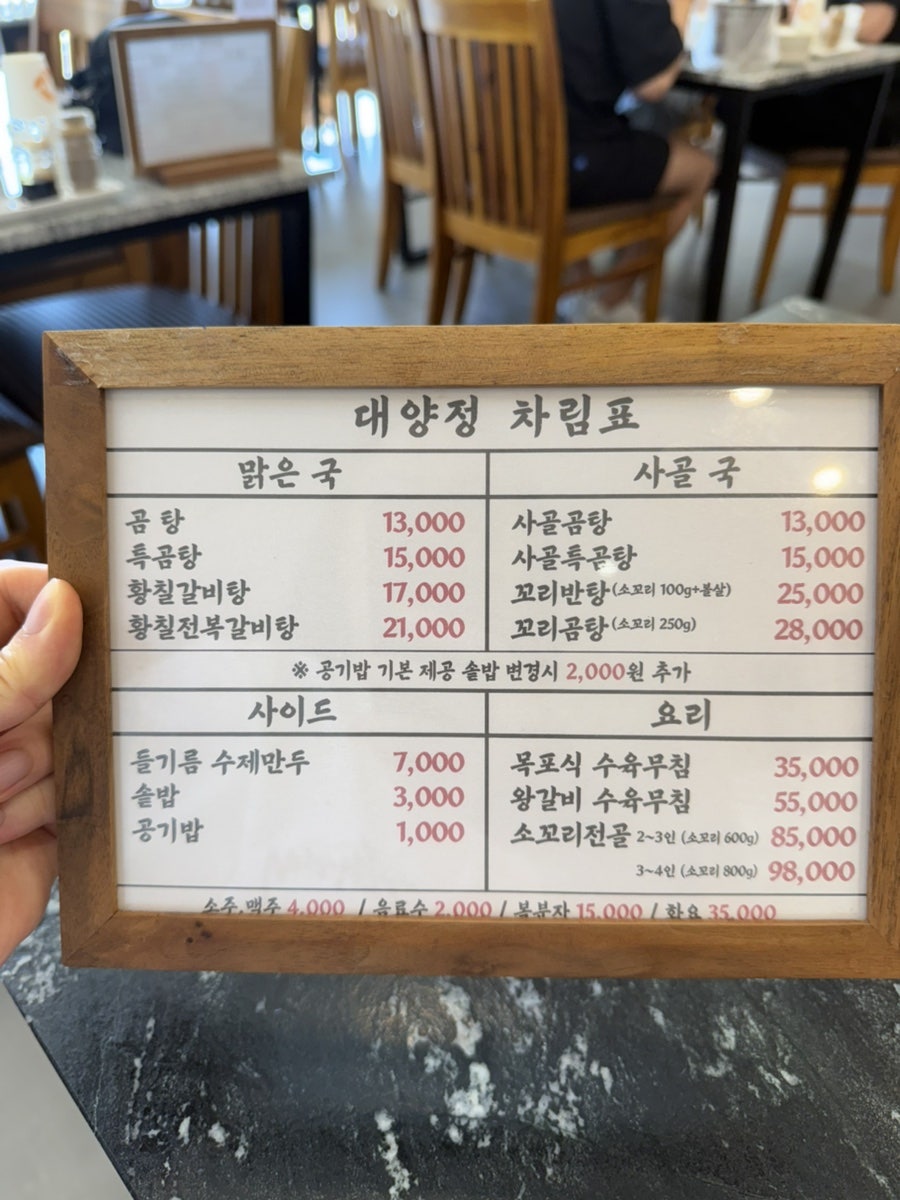 대양정 차림표
맑은 국
곰 탕 13,000
특곰탕 15,000
황칠갈비탕 17,000
황칠전복갈비탕 21,000
사골 국
사골곰탕 13,000
사골특곧탕 15,000
꼬리반탕(소꼬리 100g+볼살) 25,000
꼬리곰탕(소꼬리 250g) 28,000
※ 공기밥 기본 제공 솥밥 변경시 2,000원 추가
사이드
들기름 수제만두 7,000
솥밥 3,000
공기밥 1,000
요리
목포식 수육무침 35,000
왕갈비 수육무침 55,000
소꼬리전골 2~3인 (소꼬리 600g) 85,000
3~4인 (소꼬리 800g) 98,000
소주.맥주 4,000 / 음료수 2,000 / 복분자 15,000 / 화요 35,000